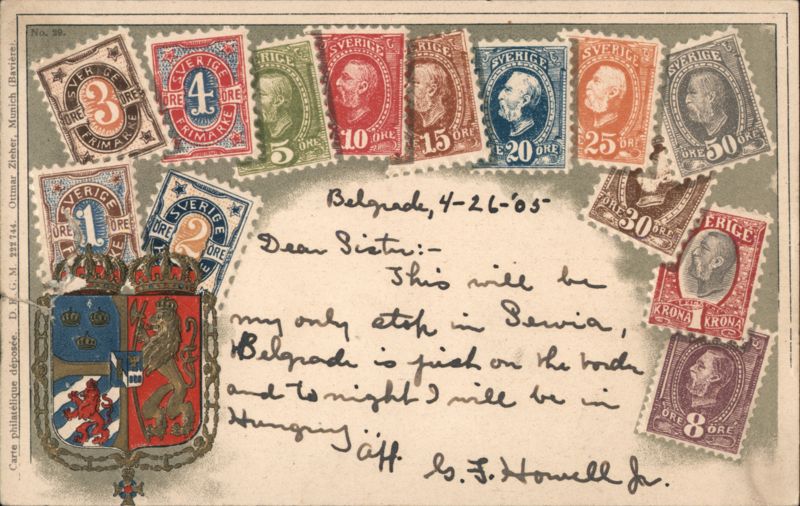 No. 29.
Carte philatélique déposée. D. R. G. M. 222 744. Ottmar Zieher, Munich (Bavière).
SVERIGE
3
ÖRE ÖRE
FRIMÄRKE
SVERIGE
4
ÖRE ÖRE
FRIMÄRKE
5 ÖRE
SVERIGE
10 ÖRE
SVERIGE
15 ÖRE
SVERIGE
20 ÖRE
SVERIGE
25 ÖRE
50 ÖRE
SVERIGE
1
ÖRE
SVERIGE
2
ÖRE ÖRE
ÖRE 30 ÖRE
ERIGE
KRONA 1 KRONA
ÖRE 8 ÖRE
Belgrade, 4-26-'05
Dear Sister:-
This will be
my only stop in Servia,
Belgrade is just on the border
and to night I will be in
Hungary.
Aff.
G. F. Howell Jr.